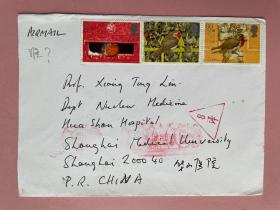 AIRMAIL
Prof. Xiong Tong Lin
Dept Nuclear Medicine
Hua Shan Hospital
Shanghai Medical University
Shanghai 200040 华山医院
P.R. CHINA